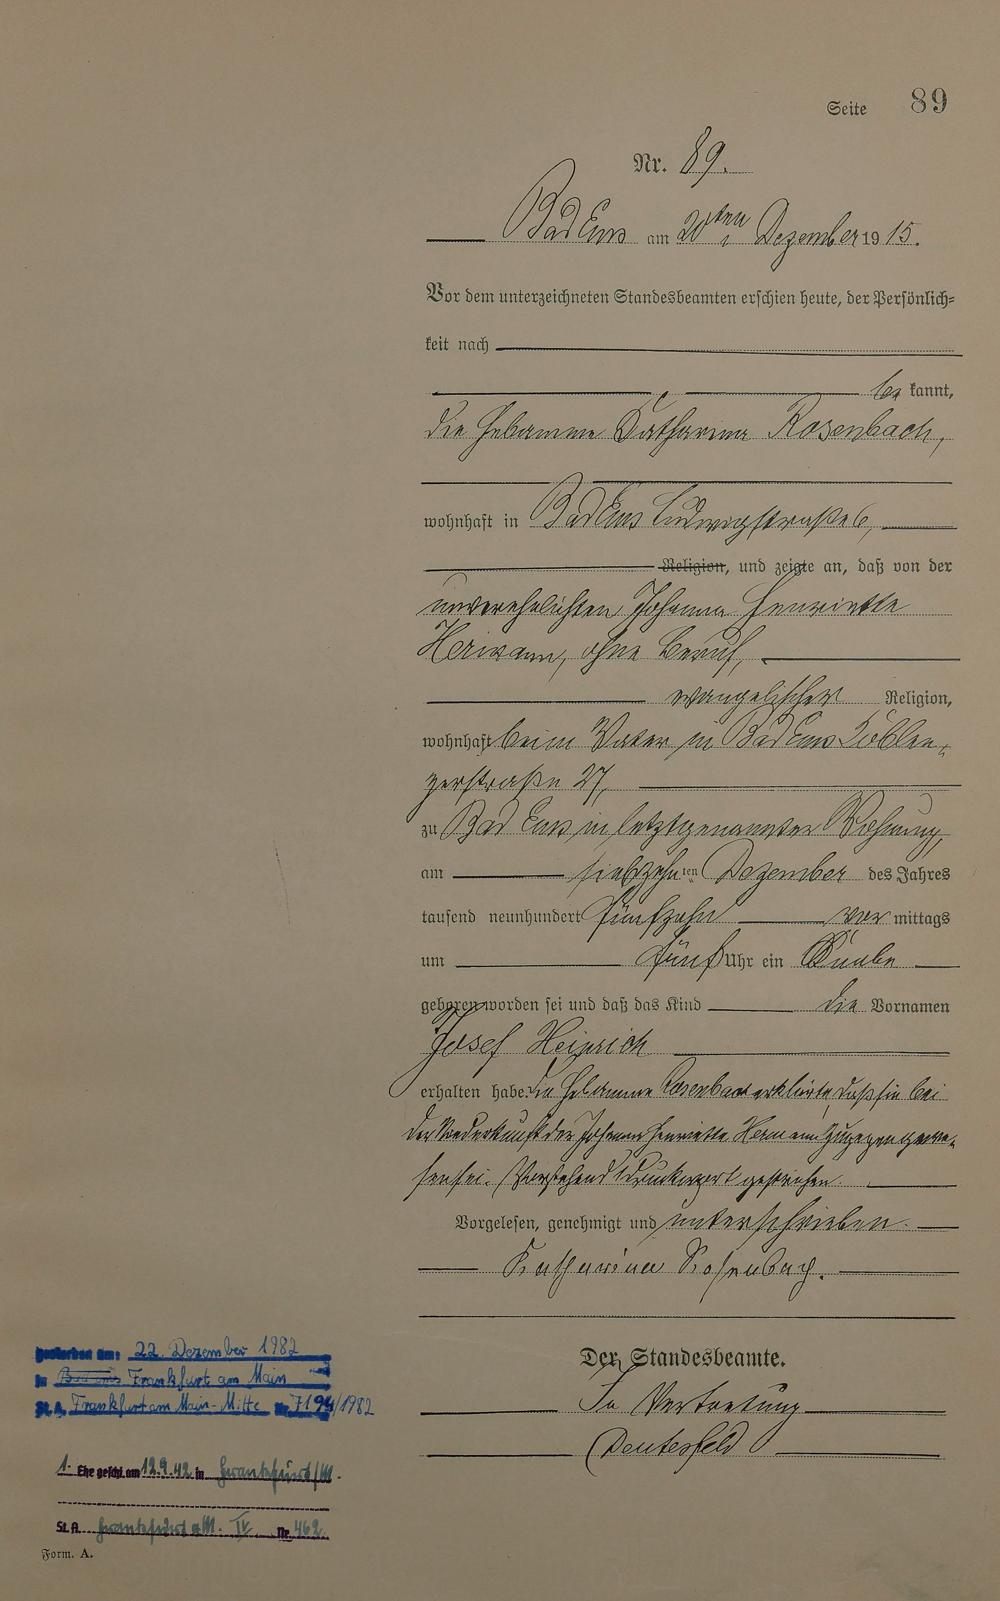 Seite 89
Nr. 89.
Bad Ems am 20ten Dezember 1915.
Vor dem unterzeichneten Standesbeamten erschien heute, der Persönlich=
keit nach
be kannt,
die Hebamme Katharina Rosenbach,
wohnhaft in Bad Ems Ludwigstraße 6,
Religion, und zeigte an, daß von der
unverehelichten Johanna Henriette
Hermann, ohne Beruf,
evangelischer Religion,
wohnhaft beim Vater in Bad Ems Coblen-
zerstraße 27,
zu Bad Ems in letztgenannter Wohnung,
am siebzehnten Dezember des Jahres
tausend neunhundert fünfzehn vor mittags
um fünf Uhr ein Knabe
geboren worden sei und daß das Kind die Vornamen
Josef Heinrich
erhalten habe. Die Hebamme Rosenbach erklärte, daß sie bei
der Niederkunft der Johanna Henriette Hermann zugegen gewe-
sen sei. Vorstehend 1 Druckwort gestrichen.
Vorgelesen, genehmigt und unterschrieben.
Katharina Rosenbach.
Der Standesbeamte.
In Vertretung
gestorben am: 22. Dezember 1982
in Bad Ems Frankfurt am Main
St. A. Frankfurt am Main-Mitte Nr. 7194/1982
1. Ehe geschl. am 12.9.42 in Frankfurt/M.
St. A. Frankfurt a/M. IV Nr. 462
Form. A.